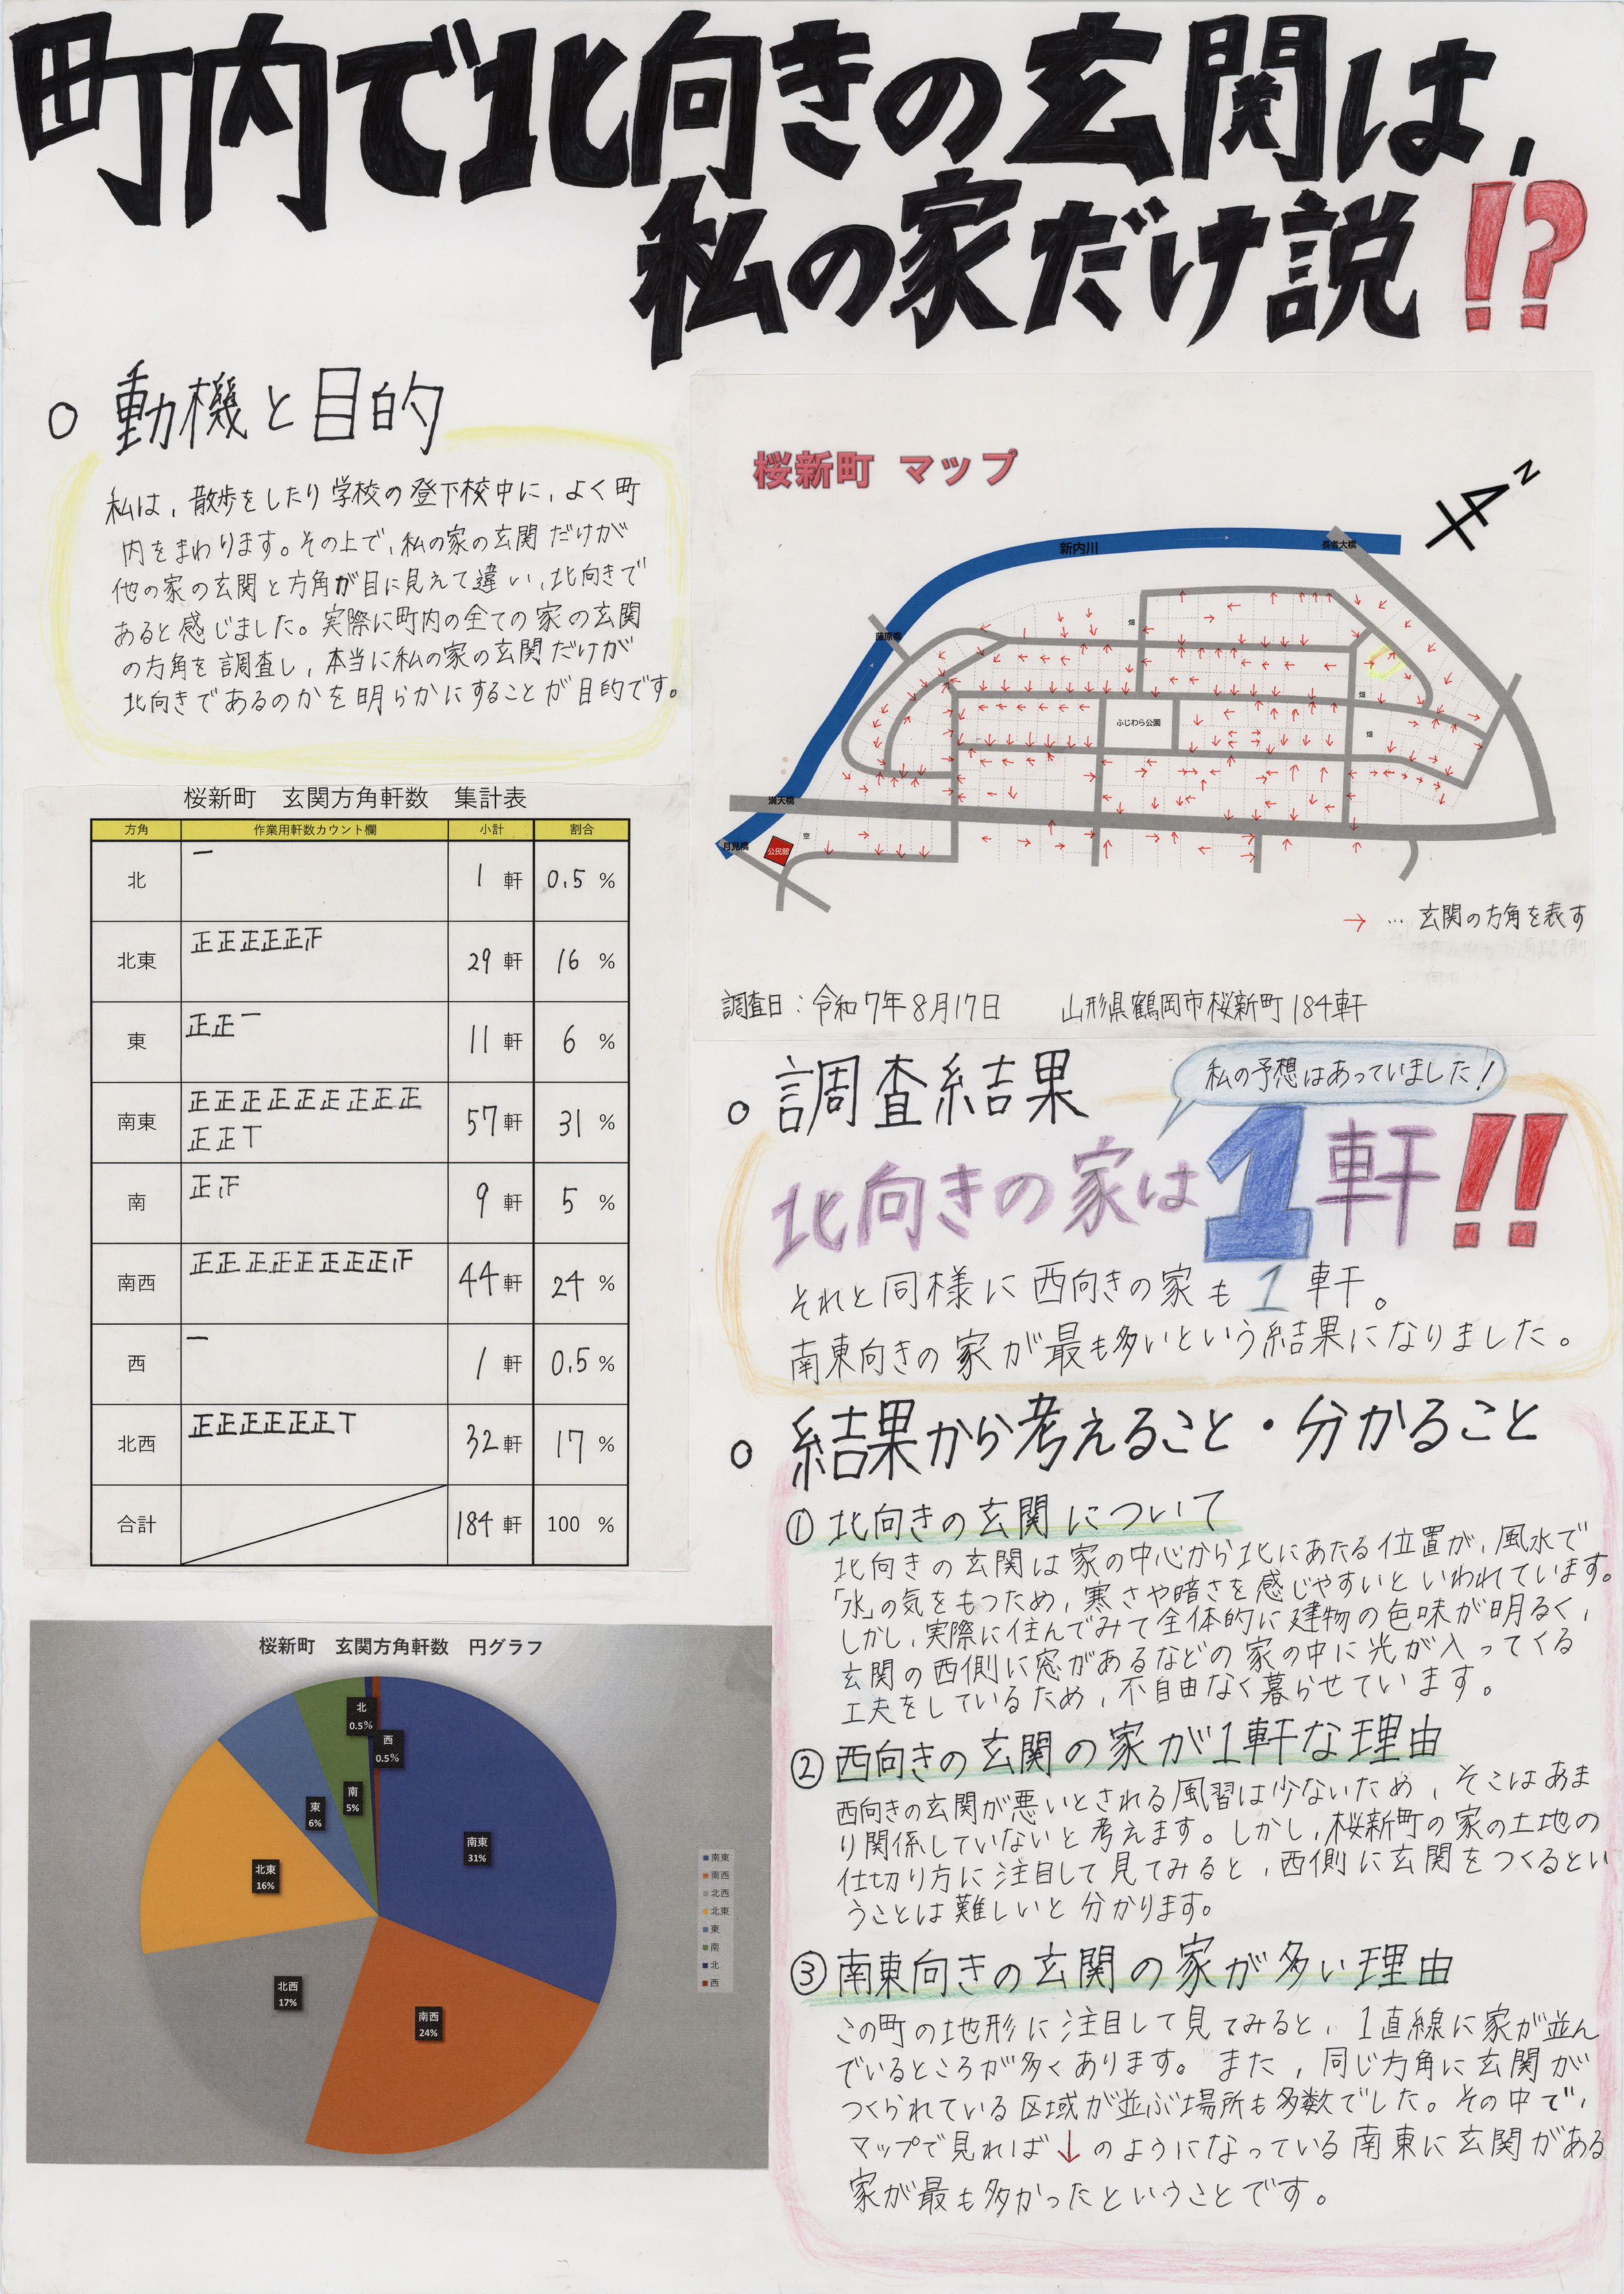 町内で北向きの玄関は,
私の家だけ説!?
○ 動機と目的
私は,散歩をしたり学校の登下校中に,よく町
内をまわります。その上で,私の家の玄関だけが
他の家の玄関と方角が目に見えて違い,北向きで
あると感じました。実際に町内の全ての家の玄関
の方角を調査し,本当に私の家の玄関だけが
北向きであるのかを明らかにすることが目的です。
桜新町 マップ
N
新内川
長者大橋
藤原橋
畑
畑
ふじわら公園
畑
満天橋
月見橋
公民館
空
→ … 玄関の方角を表す
調査日:令和7年8月17日 山形県鶴岡市桜新町184軒
桜新町 玄関方角軒数 集計表
方角 作業用軒数カウント欄 小計 割合
北 一 1 軒 0.5 %
北東 正正正正正正 29 軒 16 %
東 正正一 11 軒 6 %
南東 正正正正正正正正正
正正T 57 軒 31 %
南 正正 9 軒 5 %
南西 正正正正正正正正正 44 軒 24 %
西 一 1 軒 0.5 %
北西 正正正正正正T 32 軒 17 %
合計 184 軒 100 %
桜新町 玄関方角軒数 円グラフ
北
0.5%
西
0.5%
南
5%
東
6%
南東
31%
北東
16%
北西
17%
南西
24%
南東
南西
北西
北東
東
南
北
西
○ 調査結果
私の予想はあっていました!
北向きの家は1軒!!
それと同様に西向きの家も1軒。
南東向きの家が最も多いという結果になりました。
○ 結果から考えること・分かること
①北向きの玄関について
北向きの玄関は家の中心から北にあたる位置が,風水で
「水」の気をもつため,寒さや暗さを感じやすいといわれています。
しかし,実際に住んでみて全体的に建物の色味が明るく,
玄関の西側に窓があるなどの家の中に光が入ってくる
工夫をしているため,不自由なく暮らせています。
②西向きの玄関の家が1軒な理由
西向きの玄関が悪いとされる風習は少ないため,そこはあま
り関係していないと考えます。しかし,桜新町の家の土地の
仕切り方に注目して見てみると,西側に玄関をつくるとい
うことは難しいと分かります。
③南東向きの玄関の家が多い理由
この町の地形に注目して見てみると,1直線に家が並ん
でいるところが多くあります。また,同じ方角に玄関が
つくられている区域が並ぶ場所も多数でした。その中で,
マップで見れば↓のようになっている南東に玄関がある
家が最も多かったということです。